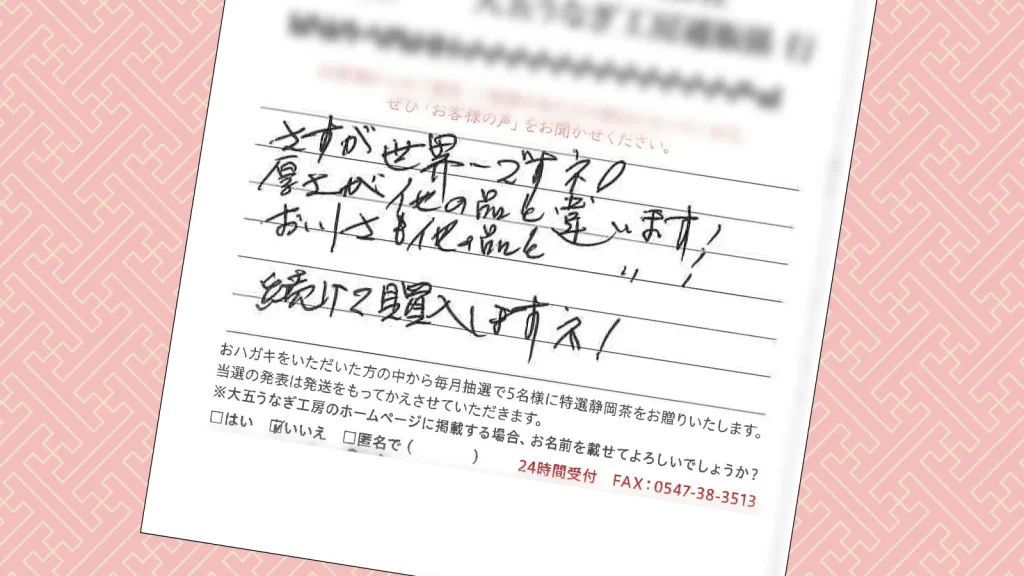 大五うなぎ工房通販係 行
ぜひ「お客様の声」をお聞かせください。
さすが世界一ですネ。
厚さが他の品と違います!
おいしさも他の品と 〃 !
続けて購入しますネ!
おハガキをいただいた方の中から毎月抽選で5名様に特選静岡茶をお贈りいたします。
当選の発表は発送をもってかえさせていただきます。
※大五うなぎ工房のホームページに掲載する場合、お名前を載せてよろしいでしょうか?
□はい ☑いいえ □匿名で( )
24時間受付 FAX:0547-38-3513